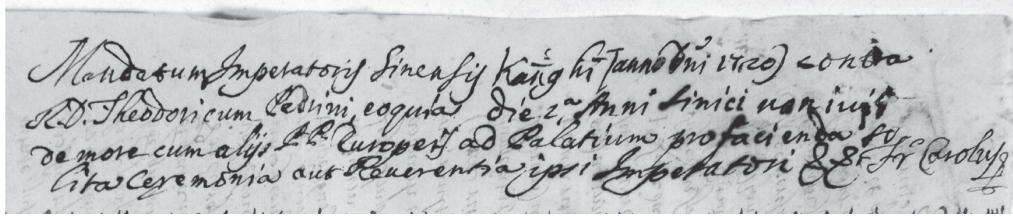 Mandatum Imperatoris Sinensis Kang hi (anno Dni 1720) contra
R.D. Theodoricum Pedrini, eo quia die 2.a Anni Sinici non ivit
de more cum alijs PP. Europeis ad Palatium pro facienda so
lita Ceremonia aut Reverentia ipsi Imperatori &&. Fr. Carolus